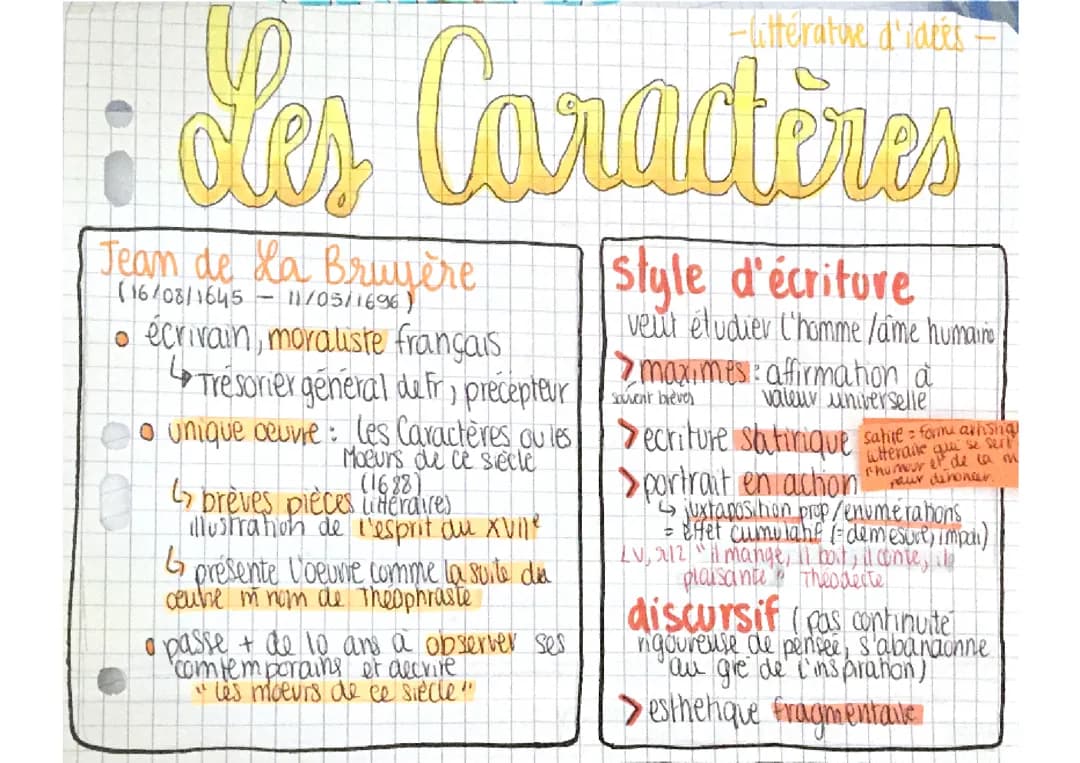 -littérature d'idées-
Les Caractères
Jean de La Bruyère
(16/08/1645 - 11/05/1696)
écrivain, moraliste français
↳ Trésorier général de Fr, précepteur
unique oeuvre : les Caractères ou les
Moeurs de ce siècle
(1688)
↳ brèves pièces littéraires)
illustration de l'esprit du XVIIe
↳ présente l'oeuvre comme la suite du
œuvre m̂ nom de Théophraste
passe + de 10 ans à observer ses
comtemporains et décrire
"les moeurs de ce siècle"
Style d'écriture
veut étudier l'homme/âme humaine
> maximes : affirmation à
souvent brèves valeur universelle
> ecriture satirique
satire = forme artistiq
littéraire qui se sert
l'humour et de la m
pour dénoncer.
> portrait en action
↳ juxtaposition prop/enumérations
= effet cumulatif (= démesure, impoli)
LV, "il mange, il boit, il conte, il
plaisante" Théodecte
discursif (pas continuité
rigoureuse de pensée, s'abandonne
au gré de l'inspiration)
> esthétique fragmentaire